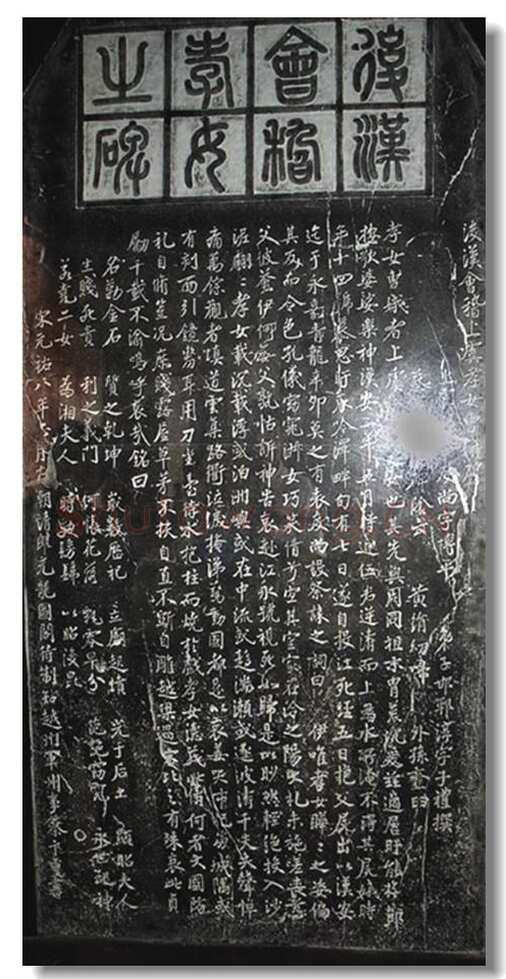 後漢
會稽
孝女
之碑
後漢會稽上虞孝女
度尚字博平 弟子邯鄲淳字子禮撰
題云 黃絹幼婦 外孫虀臼
孝女曹娥者上虞 女也其先與周同祖末胄荒流爰茲適居盱能撫節
按歌婆娑樂神漢安二年五月時迎伍君逆濤而上為水所淹不得其屍娥時
年十四號慕思盱哀吟澤畔旬有七日遂自投江死經五日抱父屍出以漢安
迄于永嘉青龍辛卯莫之有表度尚設祭誄之詞曰 伊惟孝女曄曄之姿偏
其反而令色孔儀窈窕淑女巧笑倩兮宜其室家在洽之陽大禮未施嗟喪慈
父彼蒼伊何無父孰怙訴神告哀赴江永號視死如歸是以眇然輕絕投入沙
泥翩翩孝女載沉載浮或泊洲嶼或在中流或趨湍瀨或逐波濤千夫失聲悼
痛萬餘觀者填道雲集路衢泣淚掩涕驚動國都是以哀姜哭市杞崩城隅或
有剋面引鏡剺耳用刀坐臺待水抱柱而燒於戲孝女德茂此儔何者大國防
禮自脩豈況庶賤露屋草茅不扶自直不斲自雕越梁過宋比之有殊哀此貞
勵千載不渝嗚呼哀哉銘曰
名勒金石 質之乾坤 歲數曆祀 立廟起墳 光于后土 顯昭夫人
生賤死貴 利之義門 何悵花落 飄零早分 葩艷窈窕 永世配神
若堯二女 為湘夫人 時效髣髴 以昭後昆
宋元祐八年 月左朝請郎充龍圖閣待制知越州軍州事蔡卞重書